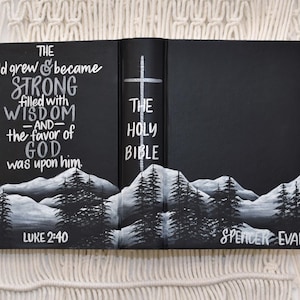 THE
d grew & became
STRONG
filled with
WISDOM
—AND—
the favor of
GOD
was upon him.
LUKE 2:40
THE
HOLY
BIBLE
SPENCER EVA